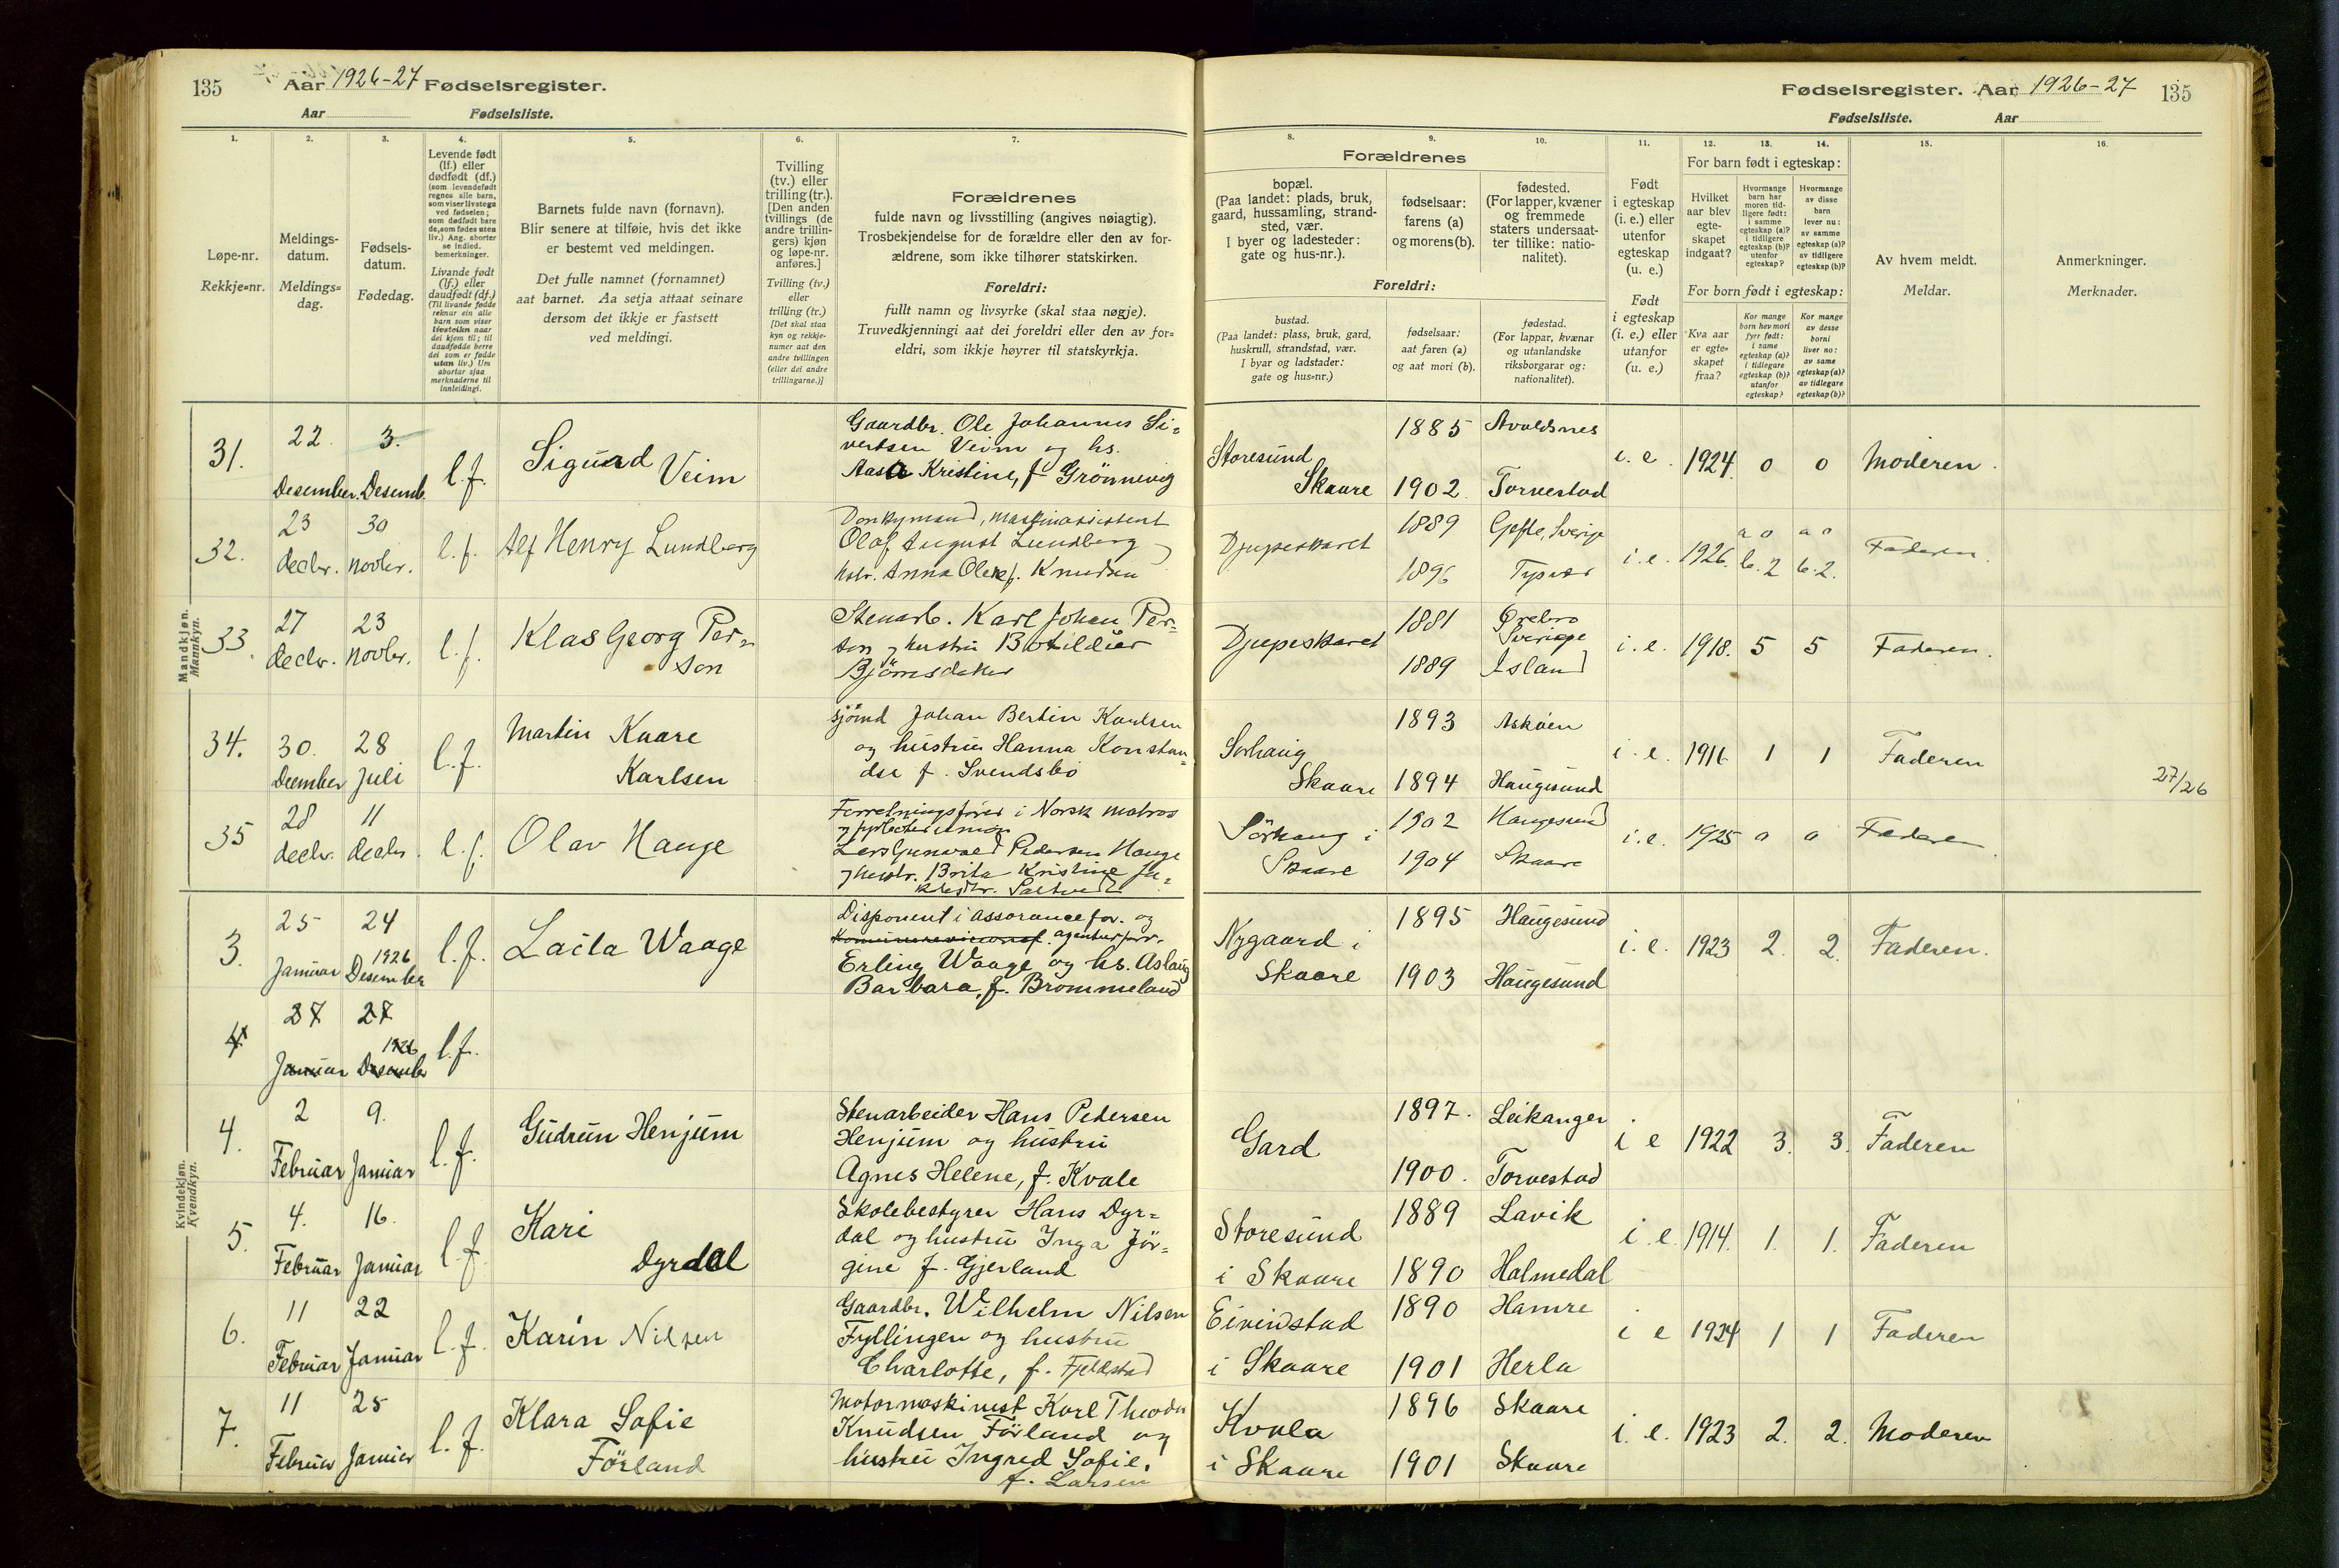 135 Aar 1926-27 Fødselsregister.
Aar Fødselsliste.
Fødselsregister. Aar 1926-27 135
Fødselsliste. Aar
1. 2. 3. 4. 5. 6. 7. 8. 9. 10. 11. 12. 13. 14. 15. 16.
Løpe-nr.
Rekkje=nr.
Meldings-
datum.
Meldings=
dag.
Fødsels-
datum.
Fødedag.
Levende født
(lf.) eller
dødfødt (df.)
(som levendefødt
regnes alle barn,
som viser livstegn
ved fødselen;
som dødfødt bare
de, som fødes uten
liv.) Ang. aborter
se indled.
bemerkninger.
Livande født
(lf.) eller
daudfødt (df.)
(Til livande fødde
reknar ein alle
born som viser
livsteikn naar
dei kjem til; til
daudfødde berre
dei som er fødde
utan liv.) Um
abortar sjaa
merknaderne til
innleidingi.
Barnets fulde navn (fornavn).
Blir senere at tilføie, hvis det ikke
er bestemt ved meldingen.
Det fulle namnet (fornamnet)
aat barnet. Aa setja attaat seinare
dersom det ikkje er fastsett
ved meldingi.
Tvilling
(tv.) eller
trilling (tr.).
[Den anden
tvillings (de
andre trillin-
gers) kjøn
og løpe-nr.
anføres.]
Tvilling (tv.)
eller
trilling (tr.)
[Det skal staa
kyn og rekkje-
numer aat den
andre tvillingen
(eller dei andre
trillingarne.)]
Forældrenes
fulde navn og livsstilling (angives nøiagtig).
Trosbekjendelse for de forældre eller den av for-
ældrene, som ikke tilhører statskirken.
Foreldri:
fullt namn og livsyrke (skal staa nøgje).
Truvedkjenningi aat dei foreldri eller den av for=
eldri, som ikkje høyrer til statskyrkja.
Forældrenes
bopæl.
(Paa landet: plads, bruk,
gaard, hussamling, strand-
sted, vær.
I byer og ladesteder:
gate og hus-nr.).
fødselsaar:
farens (a)
og morens (b).
fødested.
(For lapper, kvæner
og fremmede
staters undersaat-
ter tillike: natio-
nalitet).
Foreldri:
bustad.
(Paa landet: plass, bruk, gard,
huskrull, strandstad, vær.
I byar og ladstader:
gate og hus=nr.)
fødselsaar:
aat faren (a)
og aat mori (b).
fødestad.
(For lappar, kvænar
og utanlandske
riksborgarar og:
nationalitet).
Født
i egteskap
(i. e.) eller
utenfor
egteskap
(u. e.)
Født
i egteskap
(i. e.) eller
utanfor
(u. e.)
For barn født i egteskap:
Hvilket
aar blev
egte-
skapet
indgaat?
Hvormange
barn har
moren tid-
ligere født:
i samme
egteskap (a)?
i tidligere
egteskap (b)?
utenfor
egteskap?
Hvormange
av disse
barn
lever nu:
av samme
egteskap (a)?
av tidligere
egteskap (b)?
For born født i egteskap:
Kva aar
er egte=
skapet
fraa?
Kor mange
born hev mori
fyrr født:
i same
egteskap (a)?
i tidlegare
egteskap (b)?
utanfor
egteskap?
Kor mange
av desse
borni
liver no:
av same
egteskap (a)?
av tidlegare
egteskap (b)?
Av hvem meldt.
Meldar.
Anmerkninger.
Merknader.
Mandkjøn.
Mannkyn.
31. 22. Desember. 3. Desemb. l.f. Sigurd Veim
Gaardbr. Ole Johannes Si=
vertsen Veim og hs.
Aasa Kristine, f. Grönnevig
Storesund Skaare 1885 Avaldsnes 1902 Torvestad i. e. 1924. 0 0 Moderen.
32. 23 decbr. 30 novbr. l.f. Alf Henry Lundberg
Donkymand, maskinassistent
Olaf August Lundberg
hstr. Anna Oline f. Knudsen
Djupeskaret 1889 Gefle, Sverige 1896 Tysvær i.e. 1926. a 0 b. 2 a 0 b. 2. Faderen.
33. 27 decbr. 23 novbr. l.f. Klas Georg Per=
son
Stenarb. Karl Johan Per=
son og hustru Botildur
Björnsdatter
Djupeskaret 1881 Örebro Sverige 1889 Island i.e. 1918. 5 5 Faderen.
34. 30. December 28 Juli l.f. Martin Kaare
Karlsen
Sjömd Johan Bertin Karlsen
og hustru Hanna Konstan=
dse f. Svendsbö
Sörhaug Skaare 1893 Asköen 1894 Haugesund i.e. 1916 1 1 Faderen 27/26
35 28 decbr. 11 decbr. l.f. Olav Hauge
Forretningsförer i Norsk matros
og fyrböterunion
Lars Gunvald Pedersen Hauge
og hustr. Brita Kristine
f. Saltvedt
Sörhaug i Skaare 1902 Haugesund 1904 Skaare i.e. 1925 0 0 Faderen.
Kvindekjøn.
Kvendkyn.
3. 25 Januar 24 1926 Desember l.f. Laila Waage
Disponent i assorancefor. og
agenturforr.
Erling Waage og hs. Aslaug
Barbara, f. Brommeland
Nygaard i Skaare 1895 Haugesund 1903 Haugesund i.e. 1923 2. 2. Faderen.
4 27 Januar 27 1926 Desember l.f.
4. 2 Februar 9. Januar l.f. Gudrun Henjum
Stenarbeider Hans Pedersen
Henjum og hustru
Agnes Helene, f. Kvale
Gard 1897. Leikanger 1900. Torvestad i e 1922 3. 3. Faderen
5. 4. Februar 16. Januar l.f. Kari
Dyrdal
Skolebestyrer Hans Dyr=
dal og hustru Inga Jör=
gine f. Gjerland
Storesund i Skaare 1889 Lavik 1890 Holmedal i. e. 1914. 1. 1. Faderen
6. 11 Februar 22 Januar l.f. Karin Nilsen
Gaardbr. Wilhelm Nilsen
Fyllingen og hustru
Charlotte, f. Fjeldstad
Eivindstad i Skaare 1890 Hamre 1901 Herla i e 1924 1 1 Faderen
7. 11 Februar 25 Januar l.f. Klara Sofie
Förland
Motormaskinist Karl Theodor
Knudsen Förland og
hustru Ingred Sofie,
f. Larsen
Kvala i Skaare 1896 Skaare 1901 Skaare i. e. 1923 2. 2. Moderen